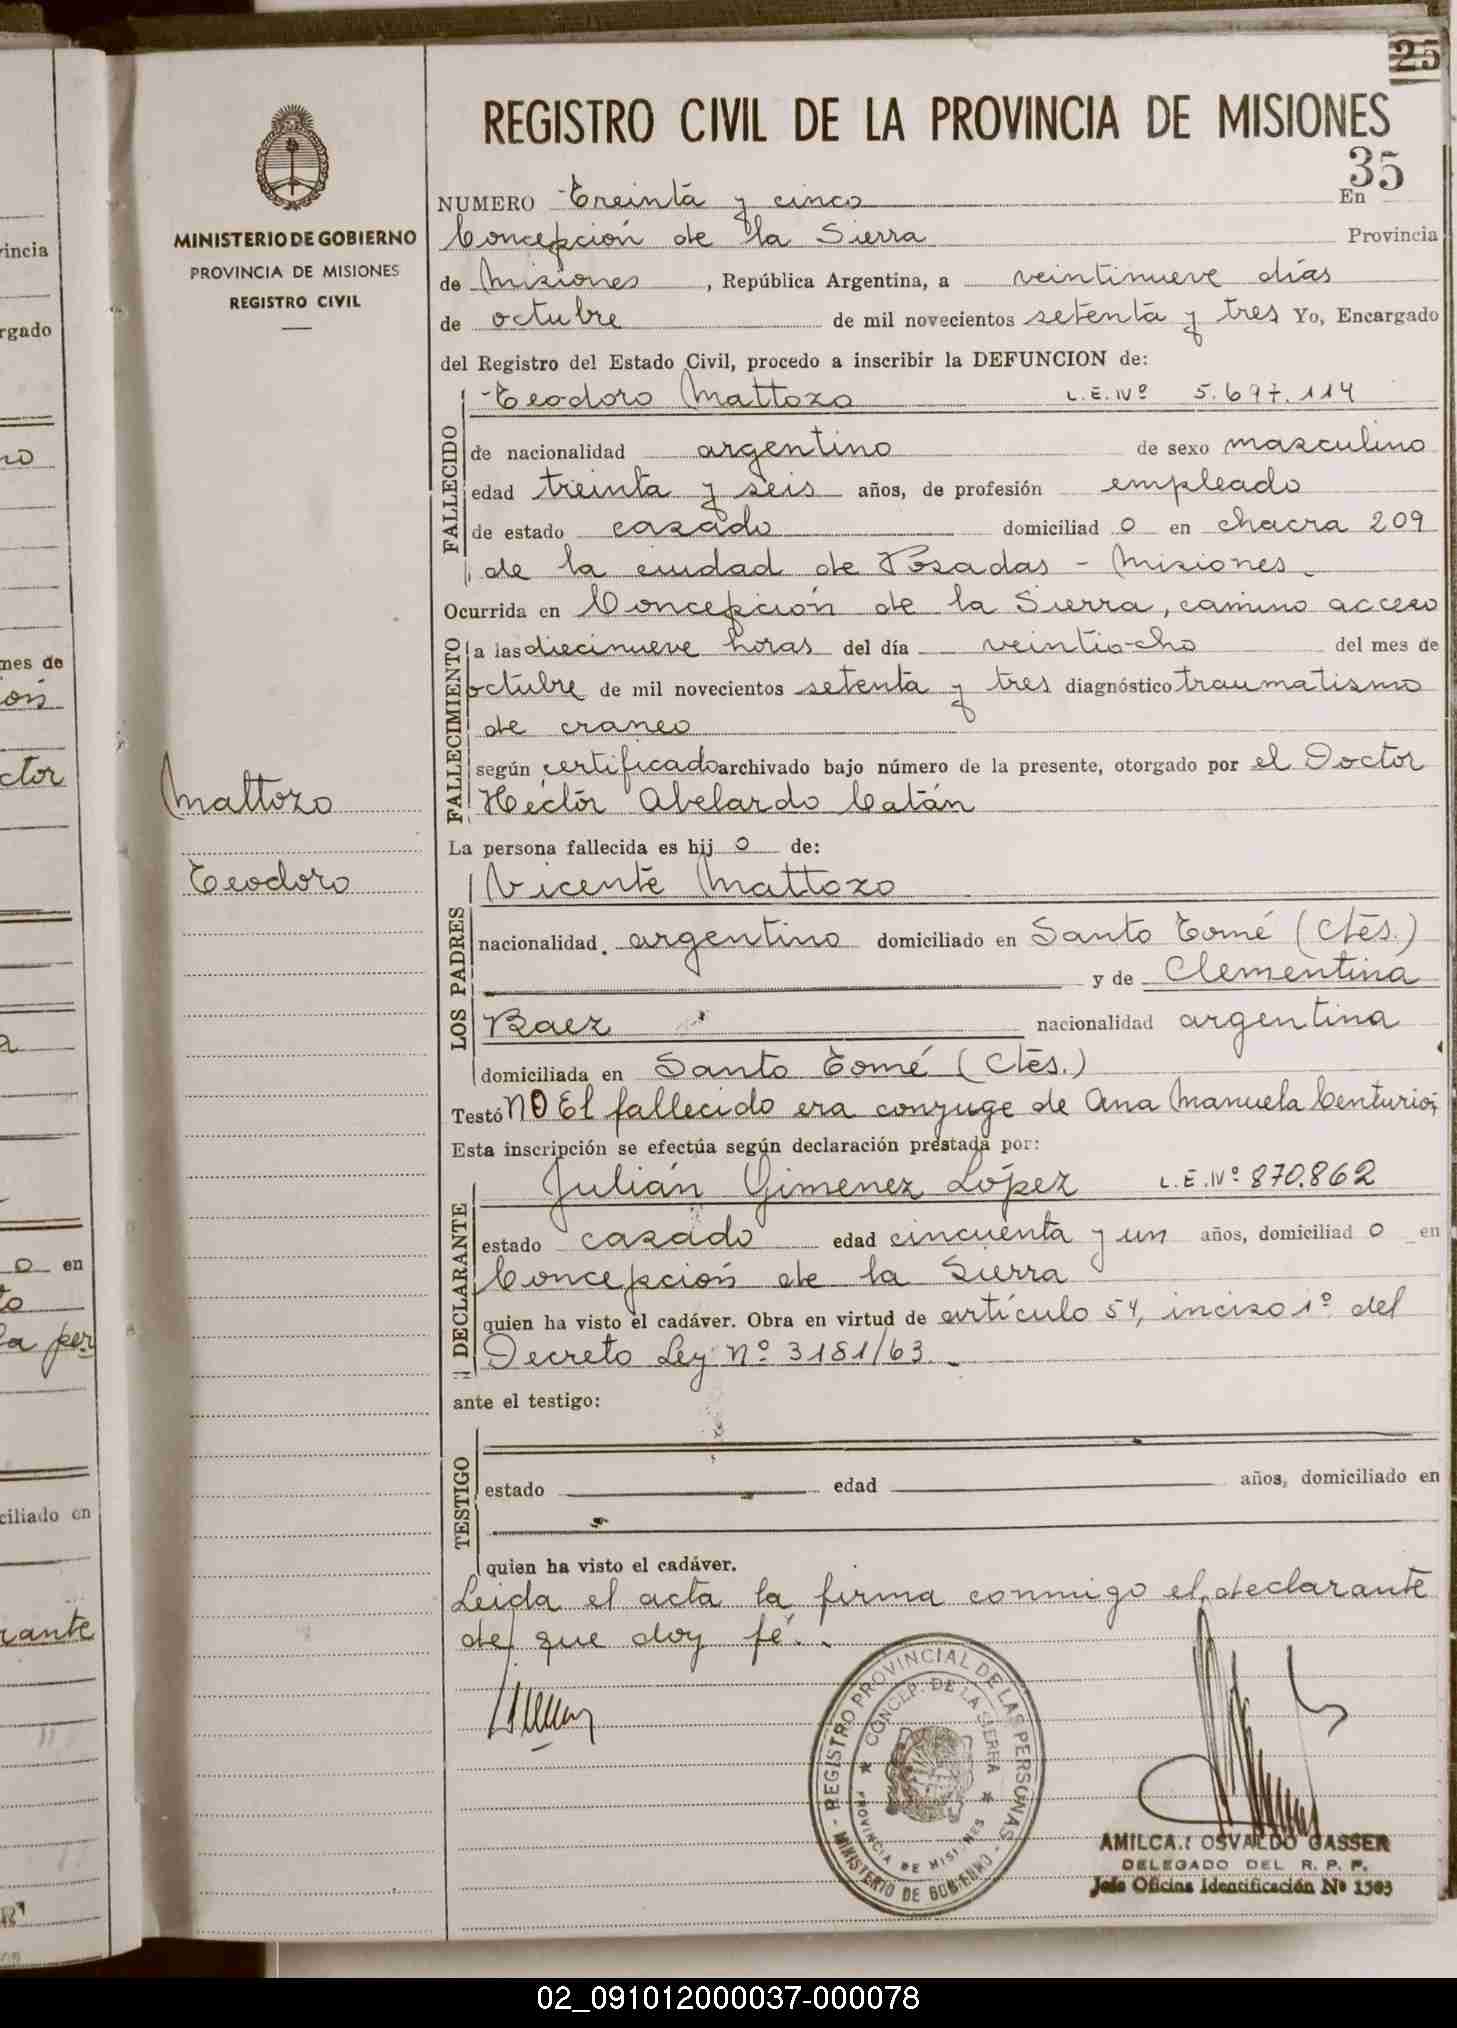 25
REGISTRO CIVIL DE LA PROVINCIA DE MISIONES
35
MINISTERIO DE GOBIERNO
PROVINCIA DE MISIONES
REGISTRO CIVIL
NUMERO Treinta y cinco En
Concepción de la Sierra Provincia
de Misiones, República Argentina, a veintinueve días
de octubre de mil novecientos setenta y tres Yo, Encargado
del Registro del Estado Civil, procedo a inscribir la DEFUNCION de:
Teodoro Mattozo L.E. Nº 5.697.114
FALLECIDO
de nacionalidad argentino de sexo masculino
edad treinta y seis años, de profesión empleado
de estado casado domiciliad o en chacra 209
de la ciudad de Posadas - Misiones.
Ocurrida en Concepción de la Sierra, camino acceso
FALLECIMIENTO
a las diecinueve horas del día veintiocho del mes de
octubre de mil novecientos setenta y tres diagnóstico traumatismo
de craneo
según certificado archivado bajo número de la presente, otorgado por el Doctor
Héctor Abelardo Catán
Mattozo
Teodoro
La persona fallecida es hij o de:
LOS PADRES
Vicente Mattozo
nacionalidad. argentino domiciliado en Santo Tomé (Ctes.)
y de Clementina
Baez nacionalidad argentina
domiciliada en Santo Tomé (Ctes.)
Testó NO El fallecido era conyuge de Ana Manuela Centurión
Esta inscripción se efectúa según declaración prestada por:
DECLARANTE
Julián Gimenez López L.E. Nº 870.862
estado casado edad cincuenta y un años, domiciliad o en
Concepción de la Sierra
quien ha visto el cadáver. Obra en virtud de artículo 54, inciso 1º del
Decreto Ley Nº 3181/63.
ante el testigo:
TESTIGO
estado edad años, domiciliado en
quien ha visto el cadáver.
Leida el acta la firma conmigo el declarante
de que doy fé.
REGISTRO PROVINCIAL DE LAS PERSONAS
CONCEP. DE LA SIERRA
PROVINCIA DE MISIONES
MINISTERIO DE GOBIERNO
AMILCAR OSVALDO GASSER
DELEGADO DEL R. P. P.
Jefe Oficina Identificación Nº 1503
vincia
rgado
no
mes de
ión
ctor
o en
to
la per
ciliado en
rante
02_091012000037-000078